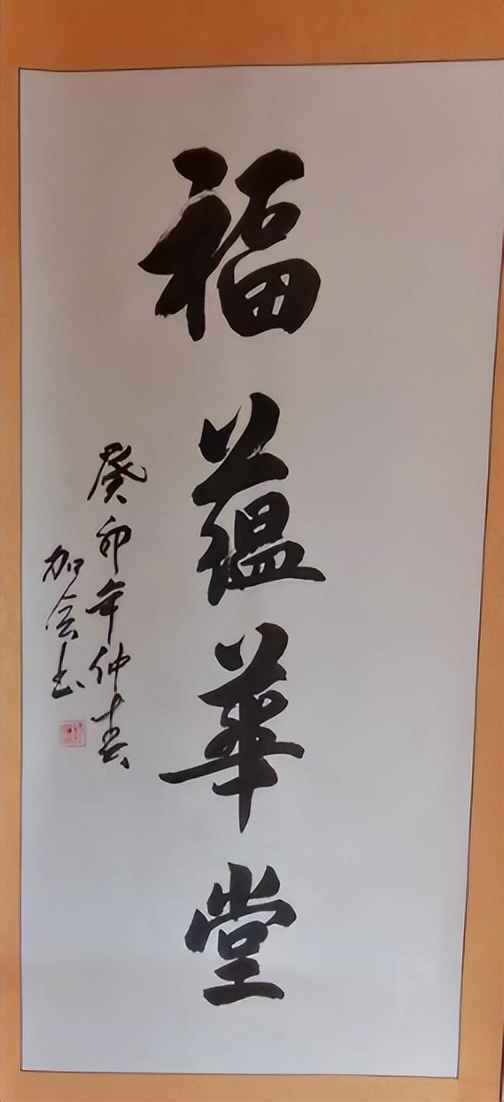 福蕴華堂
癸卯年仲春
加会书